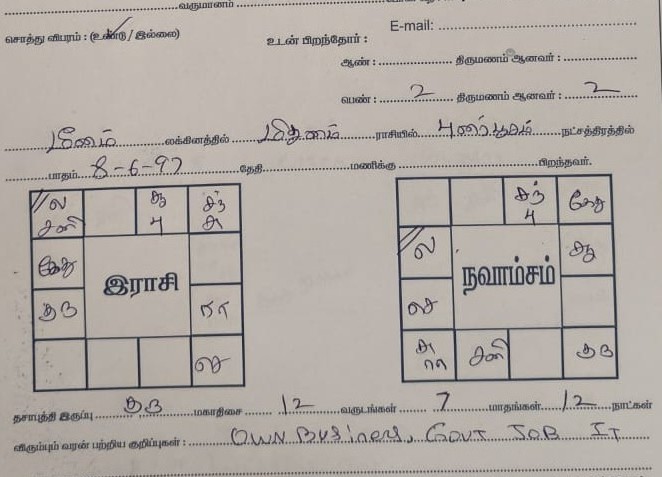 வருமானம்
சொத்து விபரம் : (உண்டு / இல்லை)
E-mail:
உடன் பிறந்தோர் :
ஆண் : திருமணம் ஆனவர் :
பெண் : 2 திருமணம் ஆனவர் : 2
மீனம் லக்கினத்தில் மிதுனம் ராசியில் புனர்பூசம் நட்சத்திரத்தில்
பாதம் 8-6-97 தேதி மணிக்கு பிறந்தவர்.
ல சனி
பு
சந்
கேது
இராசி
குரு
ரா
செ
சந் பு
கேது
ல
நவாம்சம்
செ
ரா
சனி
குரு
தசாபுத்தி இருப்பு குரு மகாதிசை 12 வருடங்கள் 7 மாதங்கள் 12 நாட்கள்
விரும்பும் வரன் பற்றிய குறிப்புகள் : OWN Business, GOVT JOB IT